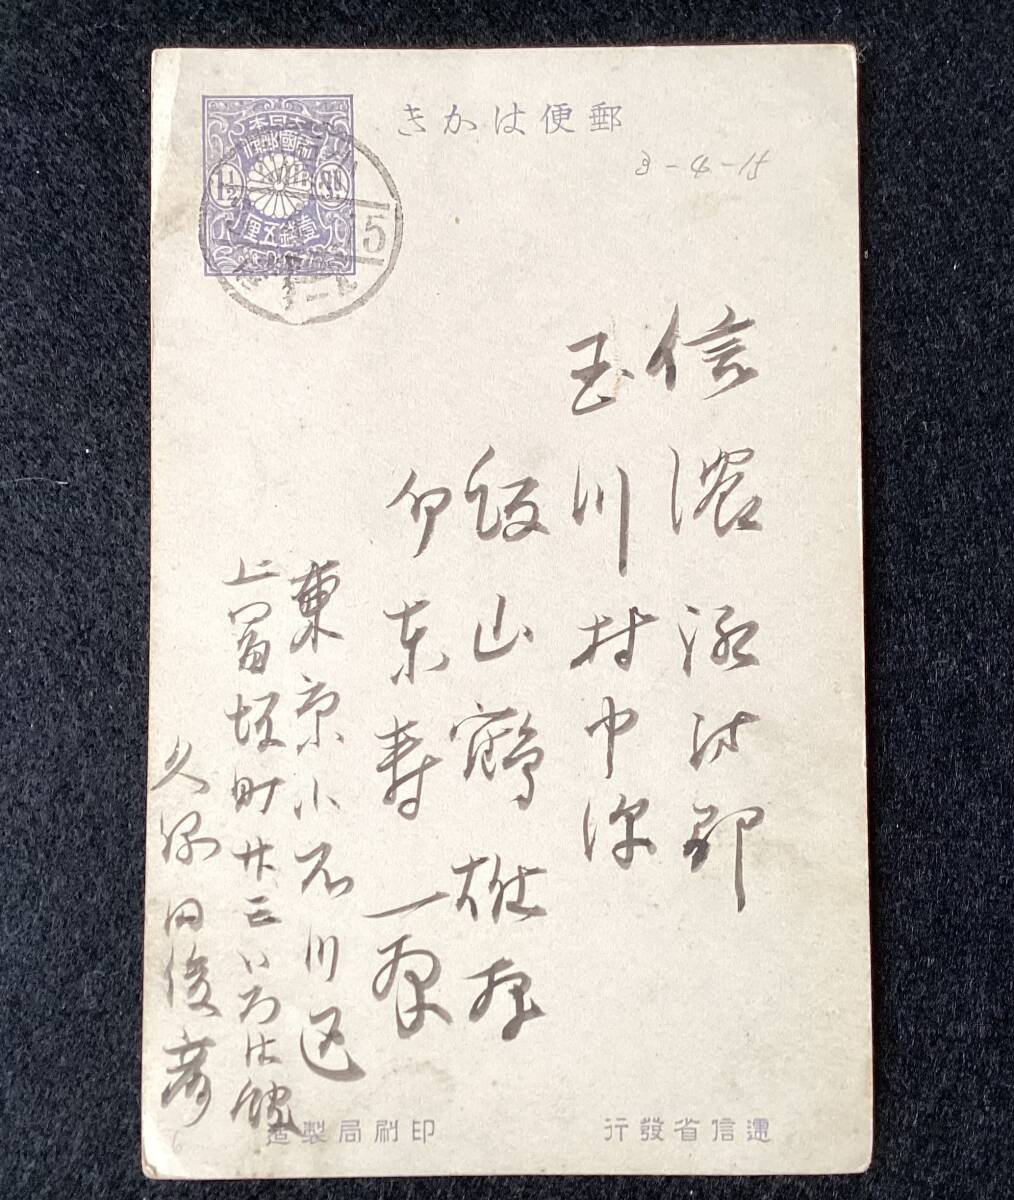 郵便はかき
3-4-15
大日本
帝國郵便
1½
SN.
壹錢五厘
5
信濃諏訪郡
玉川村中沢
飯山鶴雄様
伊東寿一様
東京小石川区
上富坂町廿三いろは館
久保田俊彦
遞信省發行
印刷局製造